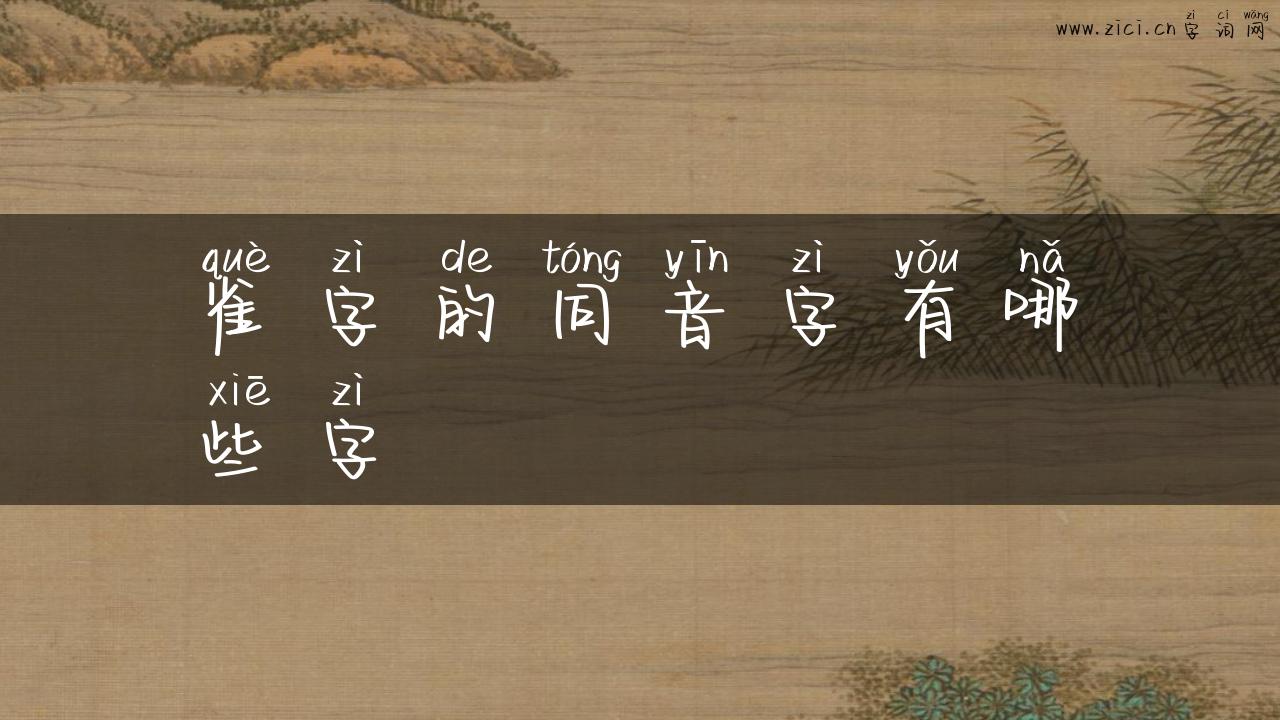 zì cí wǎng
www.zici.cn字词网
què zì de tóng yīn zì yǒu nǎ
雀字的同音字有哪
xiē zì
些字